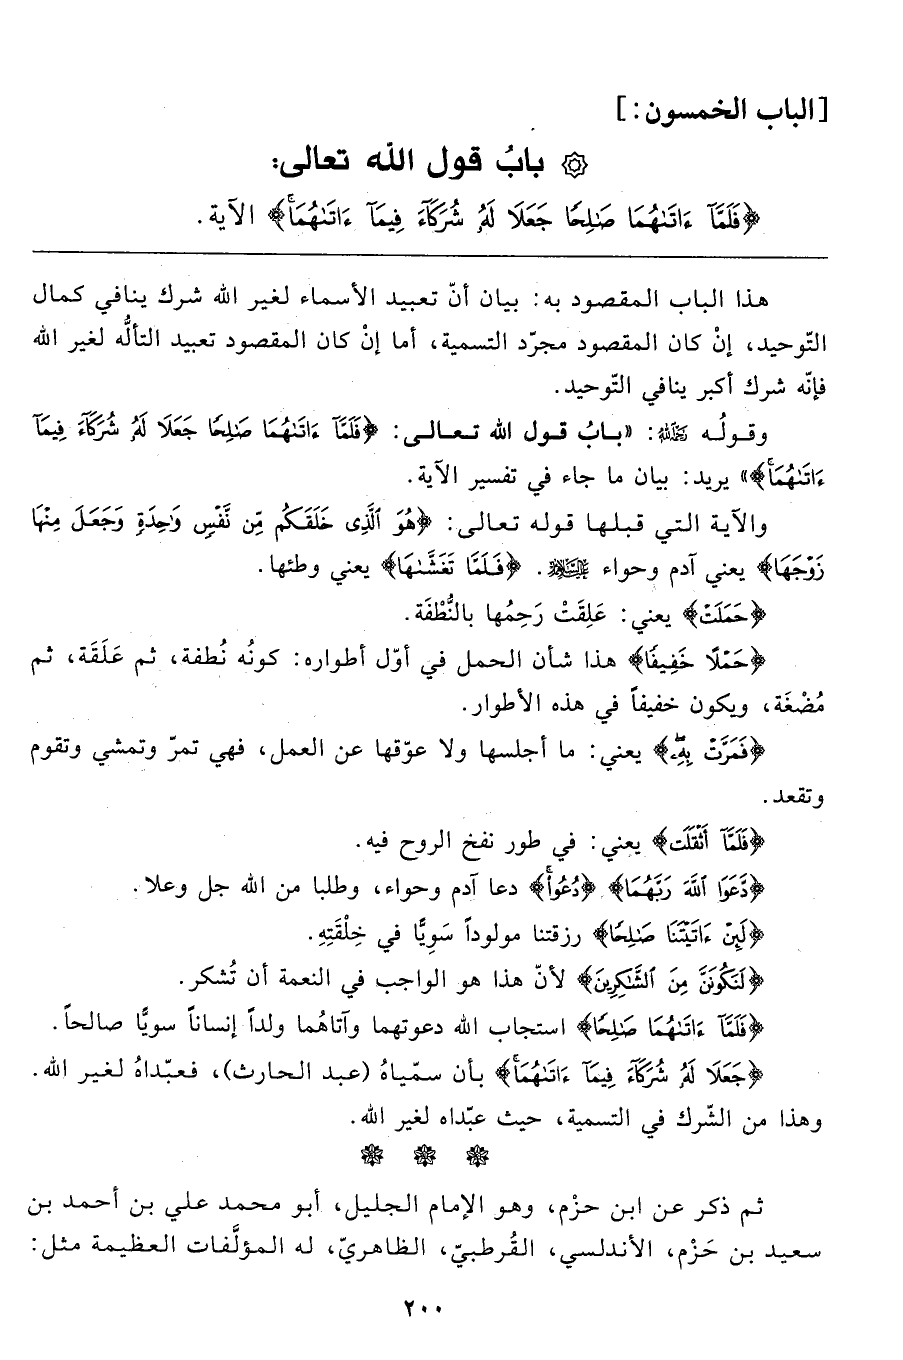 [الباب الخمسون:]
۞ بابُ قول الله تعالى:
﴿فَلَمَّآ ءَاتَىٰهُمَا صَٰلِحًا جَعَلَا لَهُۥ شُرَكَآءَ فِيمَآ ءَاتَىٰهُمَاۚ﴾ الآية.
هذا الباب المقصود به: بيان أنّ تعبيد الأسماء لغير الله شرك ينافي كمال
التّوحيد، إنْ كان المقصود مجرّد التسمية، أما إنْ كان المقصود تعبيد التألُّه لغير الله
فإنّه شرك أكبر ينافي التّوحيد.
وقولُه رَحِمَهُ اللهُ: «بابُ قول الله تعالى: ﴿فَلَمَّآ ءَاتَىٰهُمَا صَٰلِحًا جَعَلَا لَهُۥ شُرَكَآءَ فِيمَآ
ءَاتَىٰهُمَاۚ﴾» يريد: بيان ما جاء في تفسير الآية.
والآية التي قبلها قوله تعالى: ﴿هُوَ ٱلَّذِى خَلَقَكُم مِّن نَّفْسٍ وَٰحِدَةٍ وَجَعَلَ مِنْهَا
زَوْجَهَا﴾ يعني آدم وحواء عليهما السلام. ﴿فَلَمَّا تَغَشَّىٰهَا﴾ يعني وطئها.
﴿حَمَلَتْ﴾ يعني: عَلِقَتْ رَحِمُها بالنُّطْفَة.
﴿حَمْلًا خَفِيفًا﴾ هذا شأن الحمل في أوّل أطواره: كونُه نُطفة، ثم عَلَقَة، ثم
مُضْغَة، ويكون خفيفاً في هذه الأطوار.
﴿فَمَرَّتْ بِهِۦۖ﴾ يعني: ما أجلسها ولا عوّقها عن العمل، فهي تمرّ وتمشي وتقوم
وتقعد.
﴿فَلَمَّآ أَثْقَلَت﴾ يعني: في طور نفخ الروح فيه.
﴿دَّعَوَا ٱللَّهَ رَبَّهُمَا﴾ ﴿دُعُواْۚ﴾ دعا آدم وحواء، وطلبا من الله جل وعلا.
﴿لَئِنْ ءَاتَيْتَنَا صَٰلِحًا﴾ رزقتنا مولوداً سَوِيًّا في خِلْقَتِهِ.
﴿لَنَكُونَنَّ مِنَ ٱلشَّٰكِرِينَ﴾ لأنّ هذا هو الواجب في النعمة أن تُشكر.
﴿فَلَمَّآ ءَاتَىٰهُمَا صَٰلِحًا﴾ استجاب الله دعوتهما وآتاهُما ولداً إنساناً سويًّا صالحاً.
﴿جَعَلَا لَهُۥ شُرَكَآءَ فِيمَآ ءَاتَىٰهُمَاۚ﴾ بأن سمّياهُ (عبد الحارث)، فعبّداهُ لغير الله.
وهذا من الشّرك في التسمية، حيث عبّداه لغير الله.
ثم ذكر عن ابن حزْم، وهو الإمام الجليل، أبو محمد علي بن أحمد بن
سعيد بن حَزْم، الأندلسي، القُرطبيّ، الظاهريّ، له المؤلَّفات العظيمة مثل:
٢٠٠